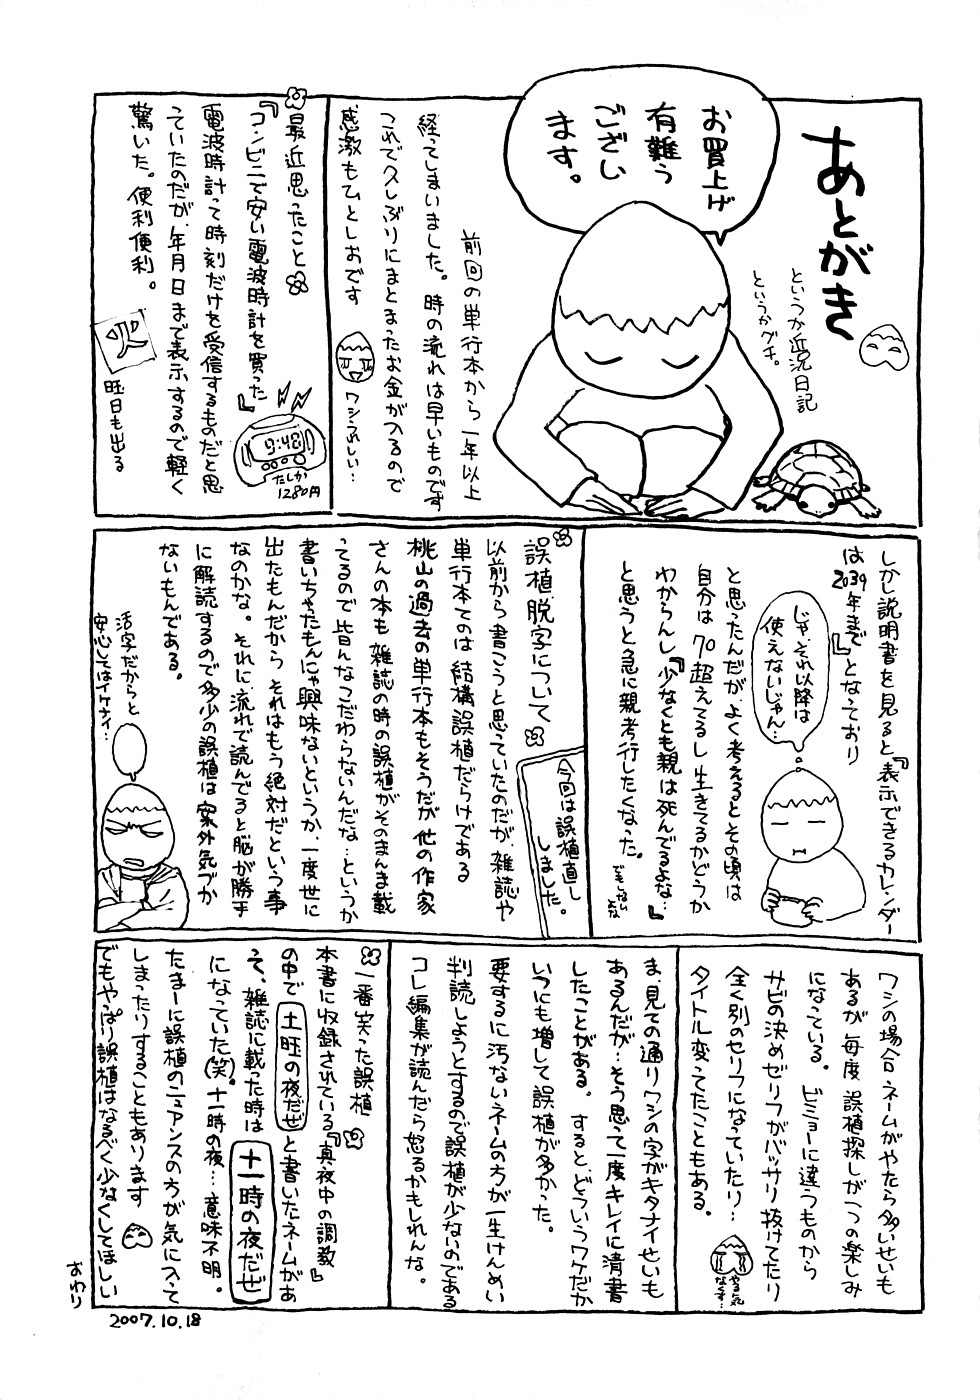 あとがき
というか近況日記
というかグチ。
お買上げ
有難う
ござい
ます。
前回の単行本から一年以上
経ってしまいました。時の流れは早いものです
これで久しぶりにまとまったお金が入るので
感激もひとしおです
ワシうれしい…
最近思ったこと
『コンビニで安い電波時計を買った』
電波時計って時刻だけを受信するものだと思
っていたのだが、年月日まで表示するので軽く
驚いた。便利便利。
9:48
たしか
1280円
火
曜日も出る
しかし説明書を見ると『表示できるカレンダー
は2039年まで』となっており
じゃ、それ以降は
使えないじゃん…
と思ったんだが、よく考えるとその頃は
自分は70超えてるし生きてるかどうか
わからんし『少なくとも親は死んでるよな…』
と思うと急に親考行したくなった。
誤植脱字について
以前から書こうと思っていたのだが、雑誌や
単行本てのは結構誤植だらけである
桃山の過去の単行本もそうだが他の作家
さんの本も雑誌の時の誤植がそのまんま載
ってるので皆んなこだわらないんだな…というか
書いちゃたもんにゃ興味ないというか、一度世に
出たもんだからそれはもう絶対だという事
なのかな。それに流れで読んでると脳が勝手
に解読するので多少の誤植は案外気づか
ないもんである。
今回は誤植直し
しました。
活字だからと
安心してはイケナイ…
ワシの場合ネームがやたら多いせいも
あるが毎度誤植探しが一つの楽しみ
になっている。ビミョーに違うものから
サビの決めゼリフがバッサリ抜けてたり
全く別のセリフになっていたり…
タイトル変ってたこともある。
やる気
なくす…
ま、見ての通りワシの字がキタナイせいも
あるんだが…そう思って一度キレイに清書
したことがある。すると、どういうワケだか
いつにも増して誤植が多かった。
要するに汚ないネームの方が一生けんめい
判読しようとするので誤植が少ないのである
コレ編集が読んだら怒るかもしれんな。
一番笑った誤植
本書に収録されている『真夜中の調教』
の中で土曜の夜だぜと書いたネームがあ
って、雑誌に載った時は十一時の夜だぜ
になっていた(笑)。十一時の夜…意味不明。
たまーに誤植のニュアンスの方が気に入って
しまったりすることもあります
でもやっぱり誤植はなるべく少なくしてほしい
おわり
2007.10.18